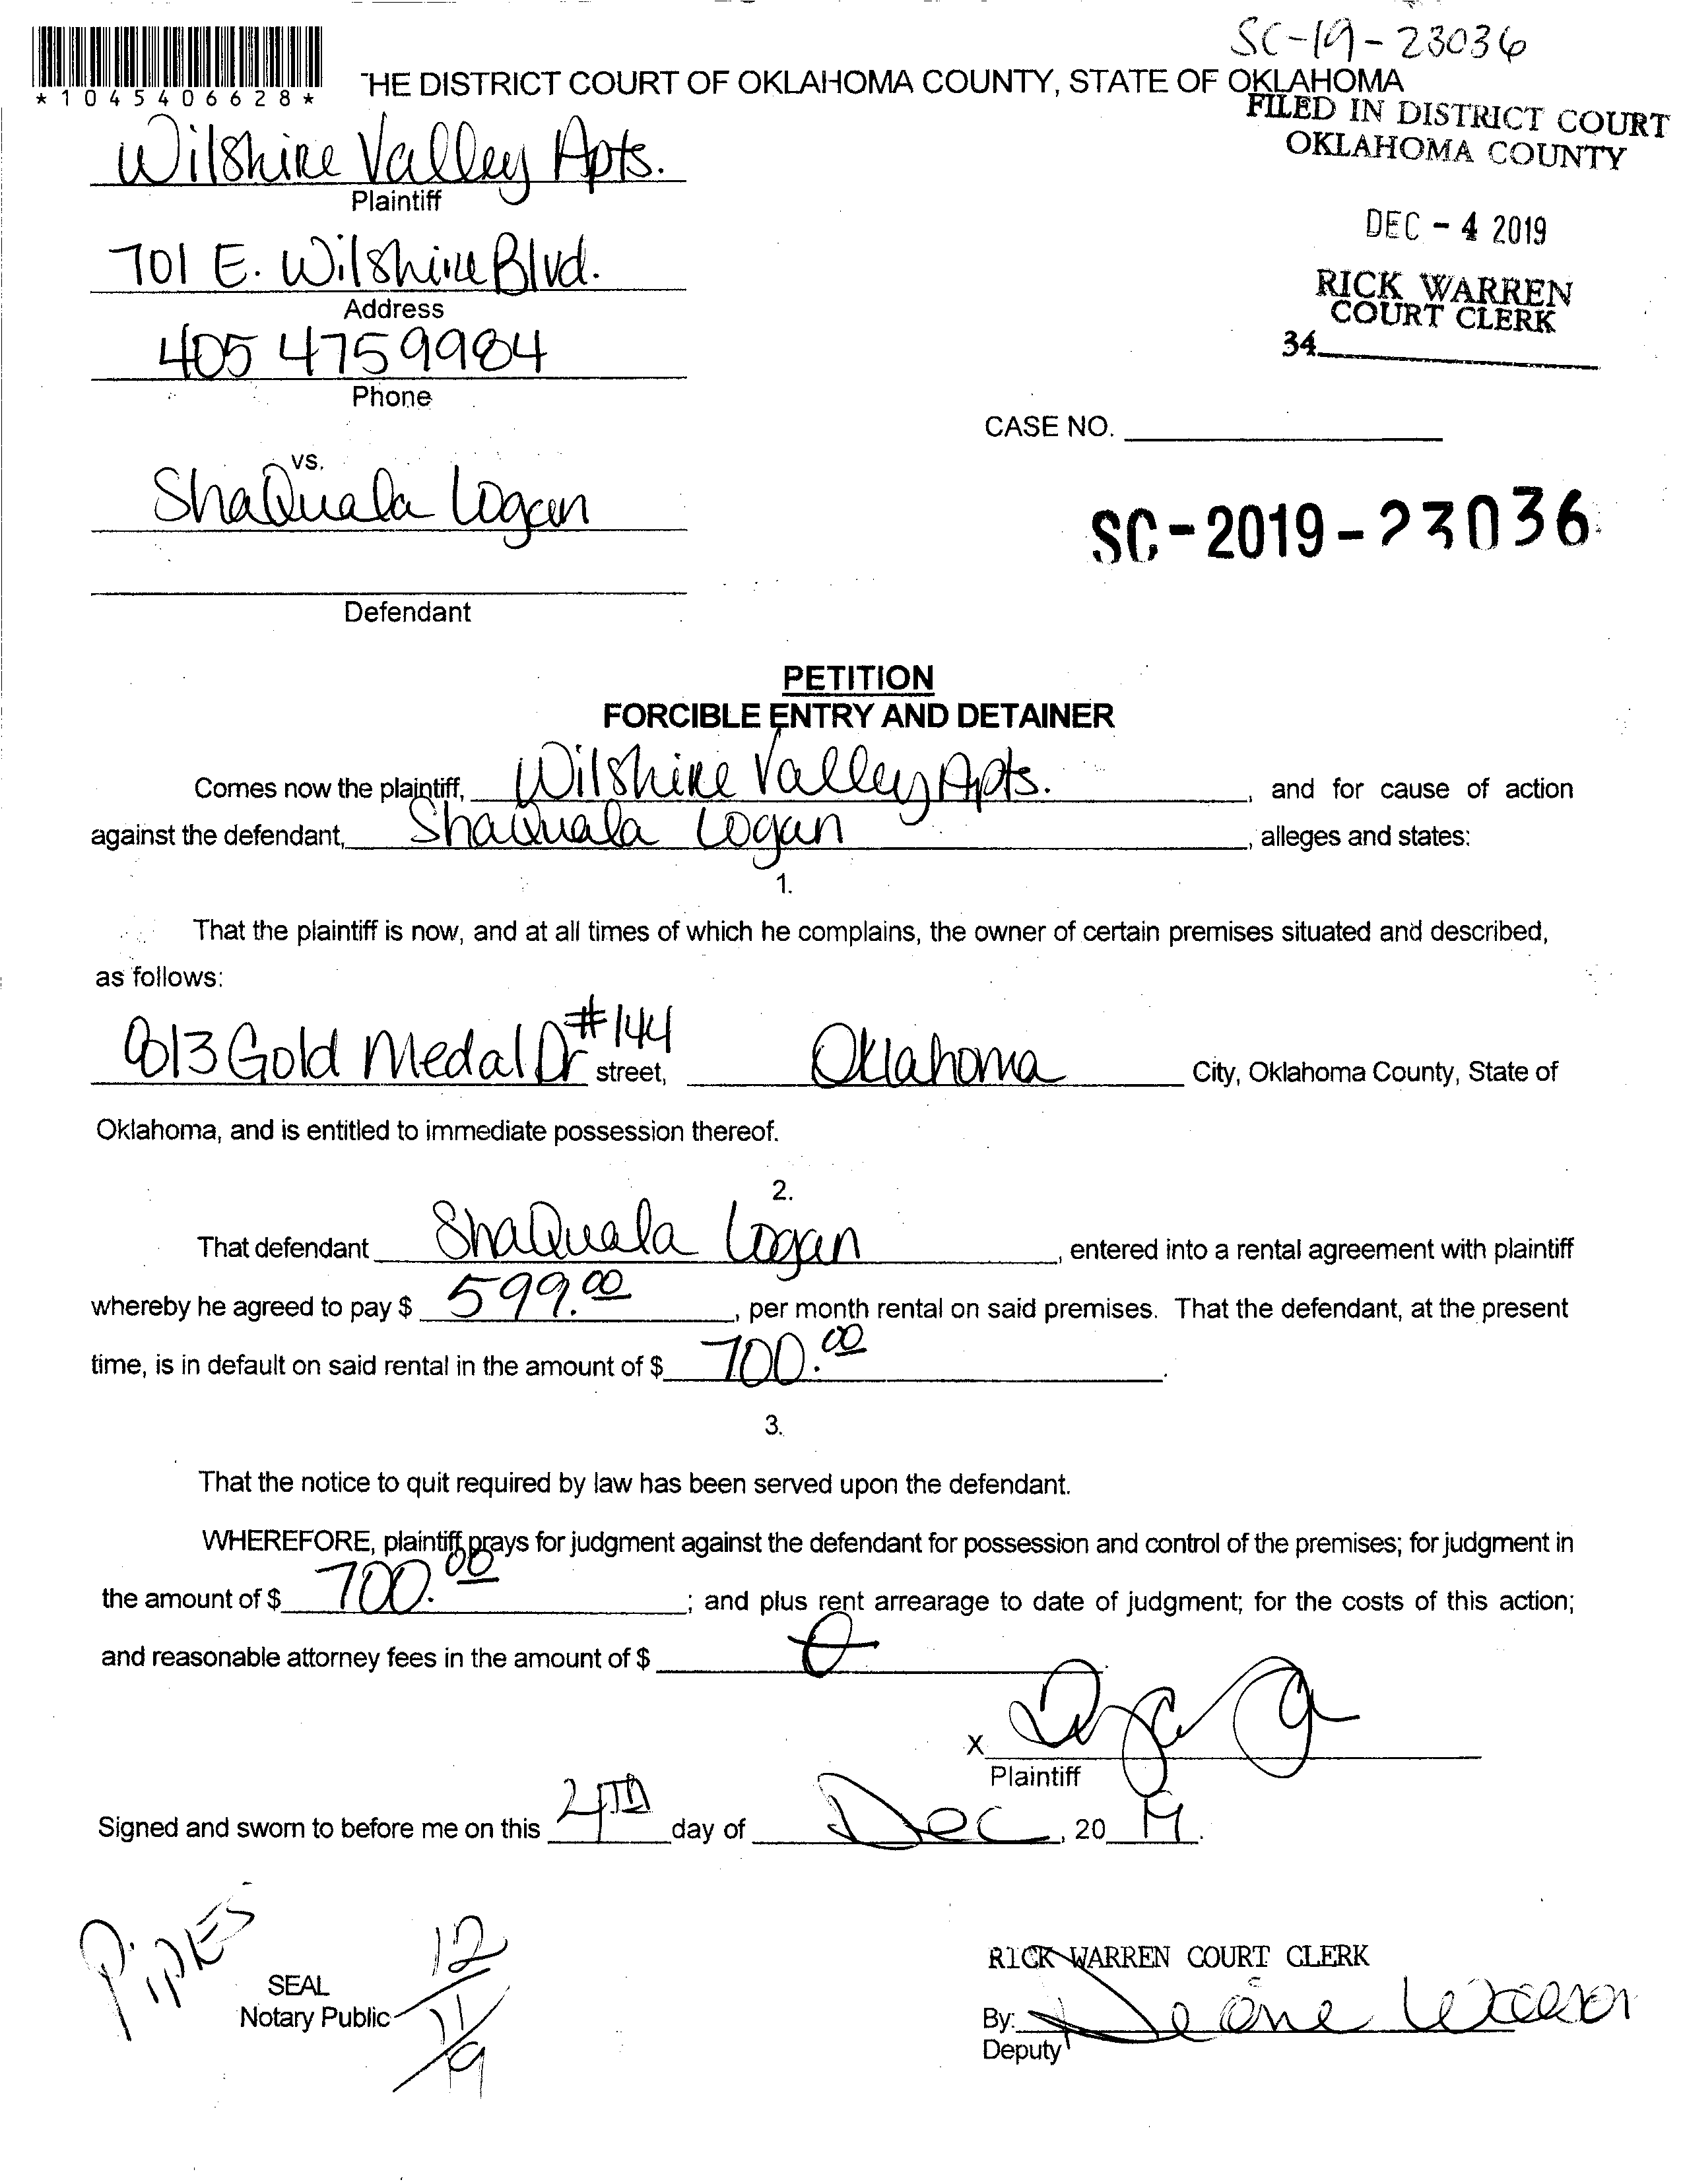 SC-19-23036
*1045406628*
THE DISTRICT COURT OF OKLAHOMA COUNTY, STATE OF OKLAHOMA
FILED IN DISTRICT COURT
OKLAHOMA COUNTY
Wilshire Valley Apts.
Plaintiff
DEC - 4 2019
701 E. Wilshire Blvd.
Address
RICK WARREN
COURT CLERK
34
405 4759984
Phone
CASE NO.
vs.
ShaQuala Logan
SC-2019-23036
Defendant
PETITION
FORCIBLE ENTRY AND DETAINER
Comes now the plaintiff, Wilshire Valley Apts. , and for cause of action
against the defendant, ShaQuala Logan , alleges and states:
1.
That the plaintiff is now, and at all times of which he complains, the owner of certain premises situated and described,
as follows:
813 Gold Medal Dr #144 street, Oklahoma City, Oklahoma County, State of
Oklahoma, and is entitled to immediate possession thereof.
2.
That defendant ShaQuala Logan , entered into a rental agreement with plaintiff
whereby he agreed to pay $ 599.00 , per month rental on said premises. That the defendant, at the present
time, is in default on said rental in the amount of $ 700.00 .
3.
That the notice to quit required by law has been served upon the defendant.
WHEREFORE, plaintiff prays for judgment against the defendant for possession and control of the premises; for judgment in
the amount of $ 700.00 ; and plus rent arrearage to date of judgment; for the costs of this action;
and reasonable attorney fees in the amount of $
X
Plaintiff
Signed and sworn to before me on this 4TH day of Dec , 20 19.
Pipkes
12/11/19
SEAL
Notary Public
RICK WARREN COURT CLERK
By:
Deputy